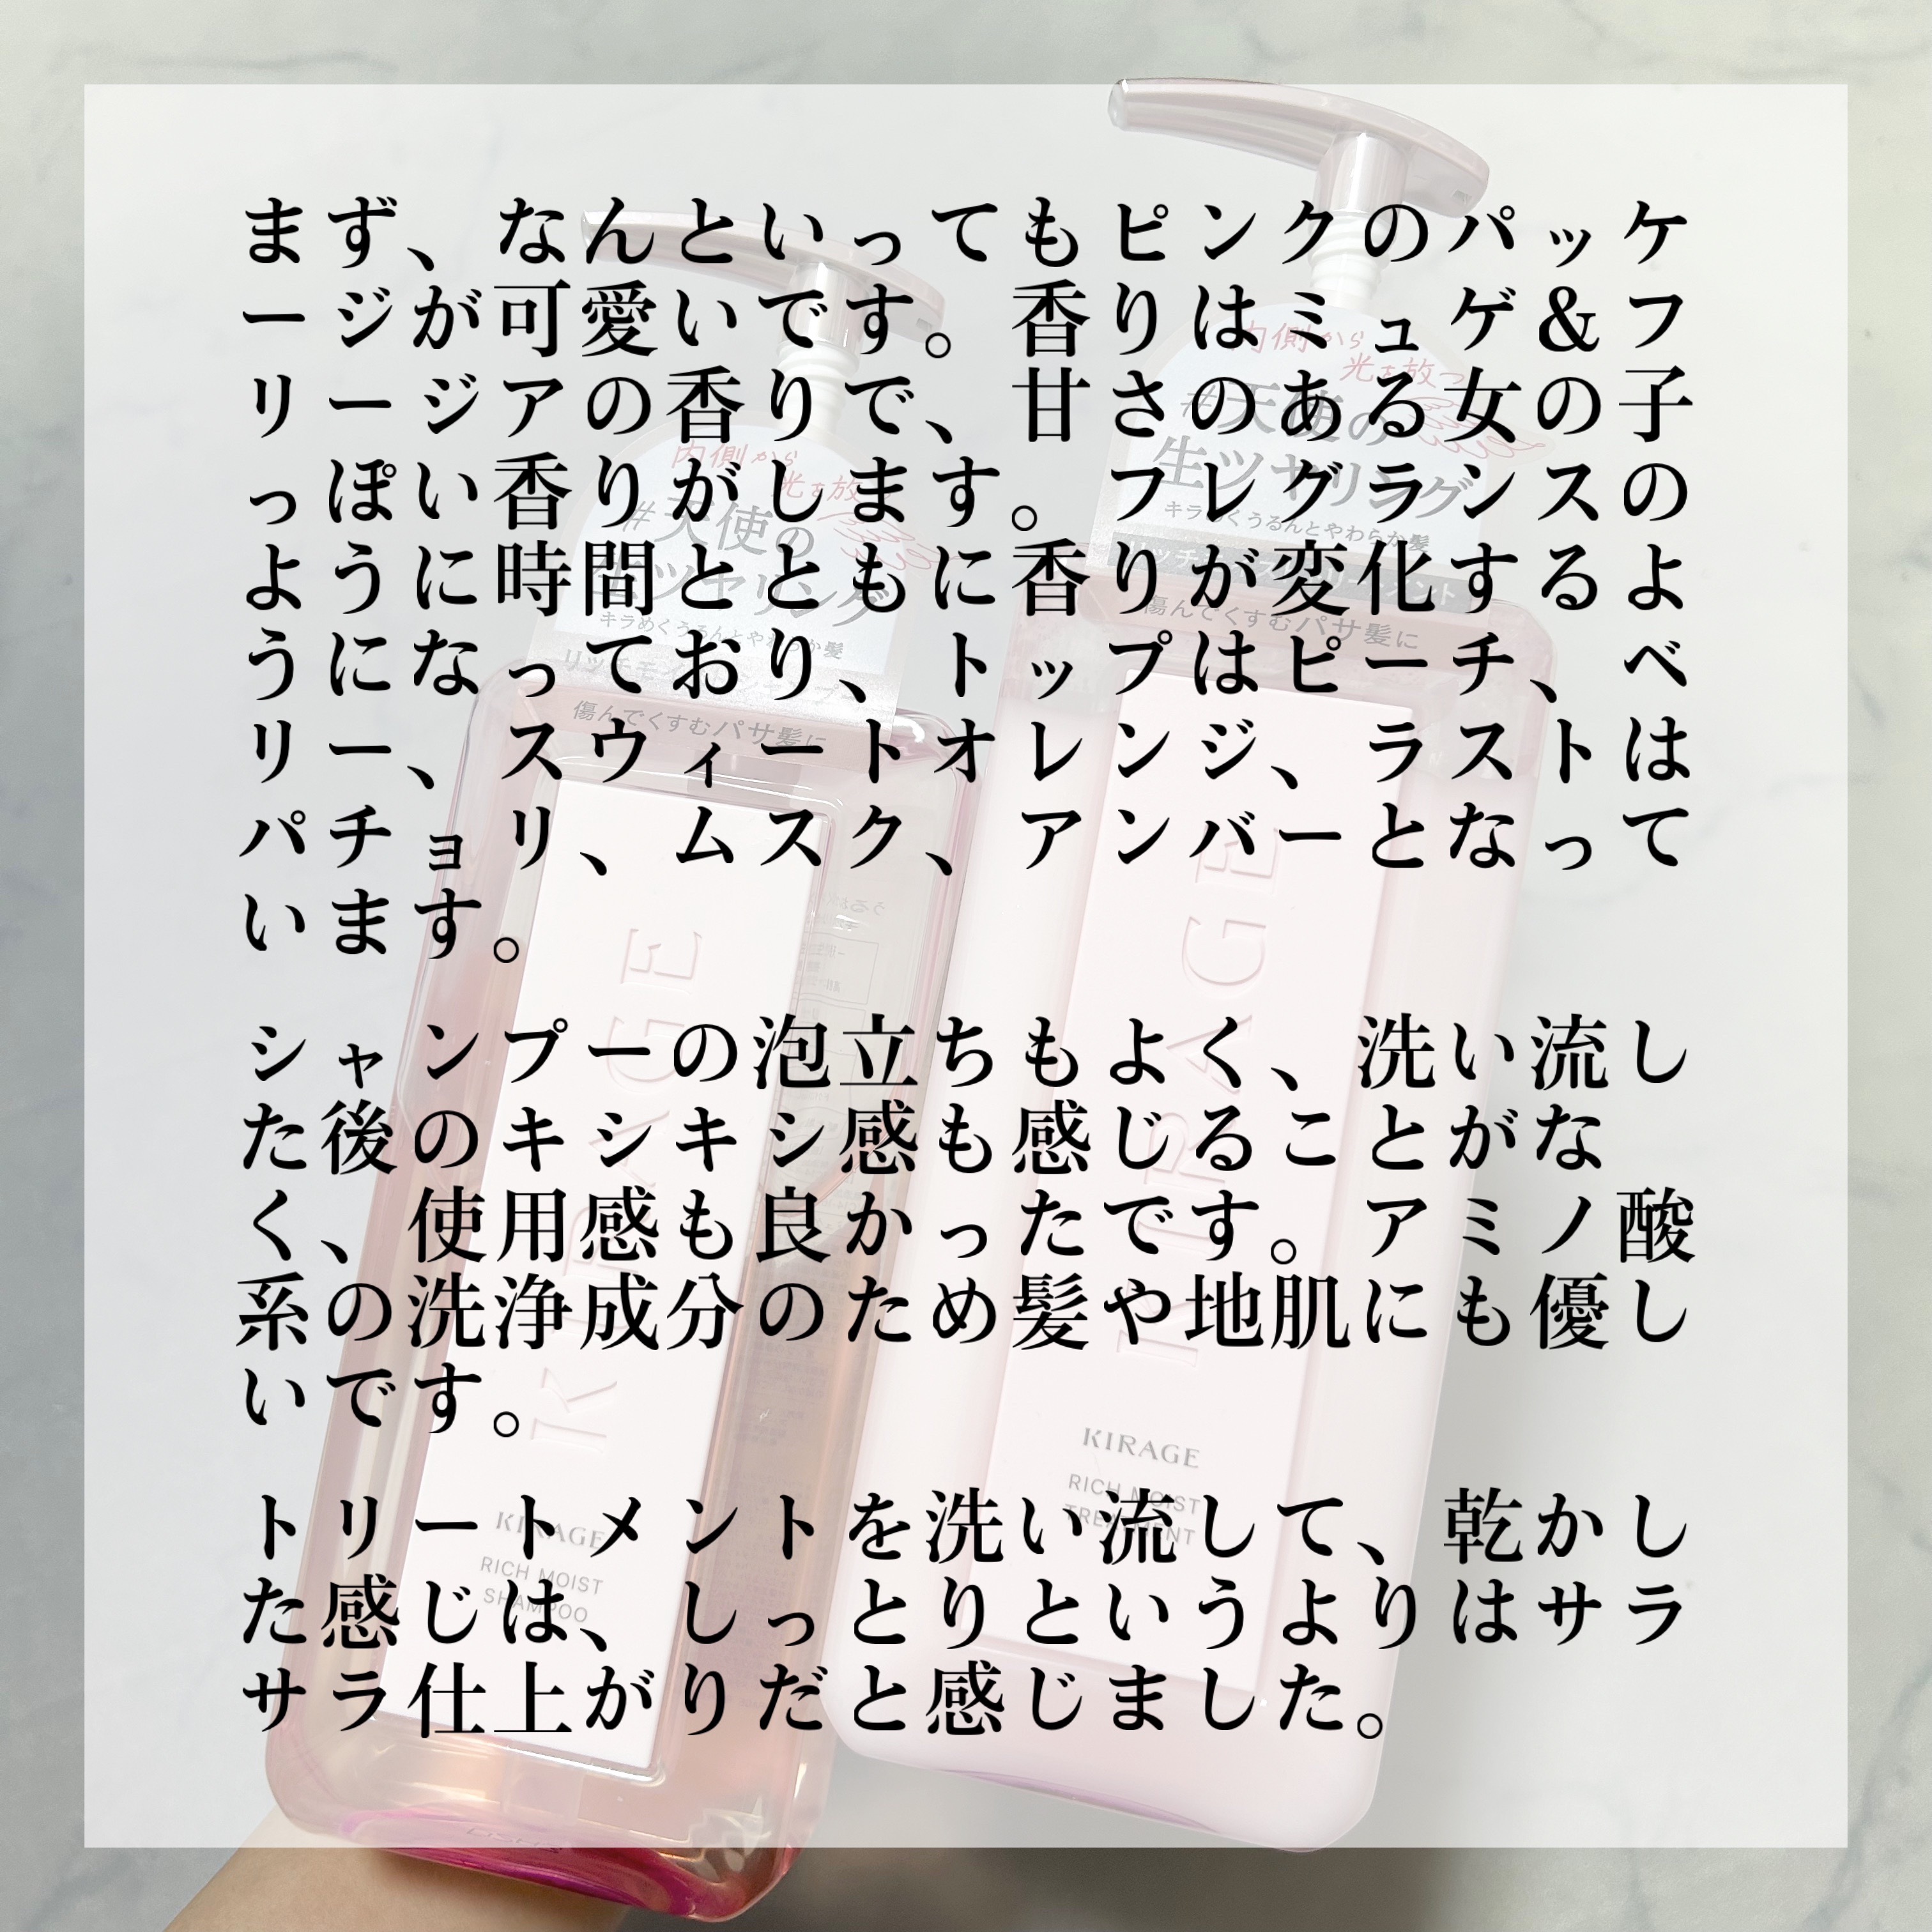 まず、なんといってもピンクのパッケ
ージが可愛いです。香りはミュゲ&フ
リージアの香りで、甘さのある女の子
っぽい香りがします。フレグランスの
ように時間とともに香りが変化するよ
うになっており、トップはピーチ、ベ
リー、スウィートオレンジ、ラストは
パチョリ、ムスク、アンバーとなって
います。
シャンプーの泡立ちもよく、洗い流し
た後のキシキシ感も感じることがな
く、使用感も良かったです。アミノ酸
系の洗浄成分のため髪や地肌にも優し
いです。
トリートメントを洗い流して、乾かし
た感じは、しっとりというよりはサラ
サラ仕上がりだと感じました。
内側から
光を放つ
#天使の
生ツヤリング
キラめくうるんとやわらか髪
傷んでくすむパサ髪に
KIRAGE
KIRAGE
RICH MOIST
SHAMPOO
内側から
光を放つ
#天使の
生ツヤリング
キラめくうるんとやわらか髪
傷んでくすむパサ髪に
KIRAGE
KIRAGE
RICH MOIST
TREATMENT